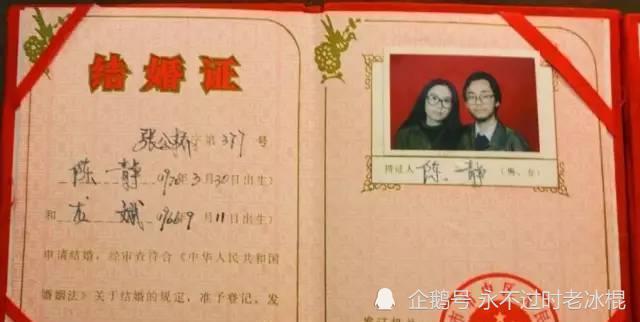 结婚证
张公桥字第377号
陈静(1970年3月30日出生)
和龙斌(1966年9月11日出生)
申请结婚，经审查符合《中华人民共和国
婚姻法》关于结婚的规定，准予登记，发
持证人 陈静 (男、女)
企鹅号 永不过时老冰棍